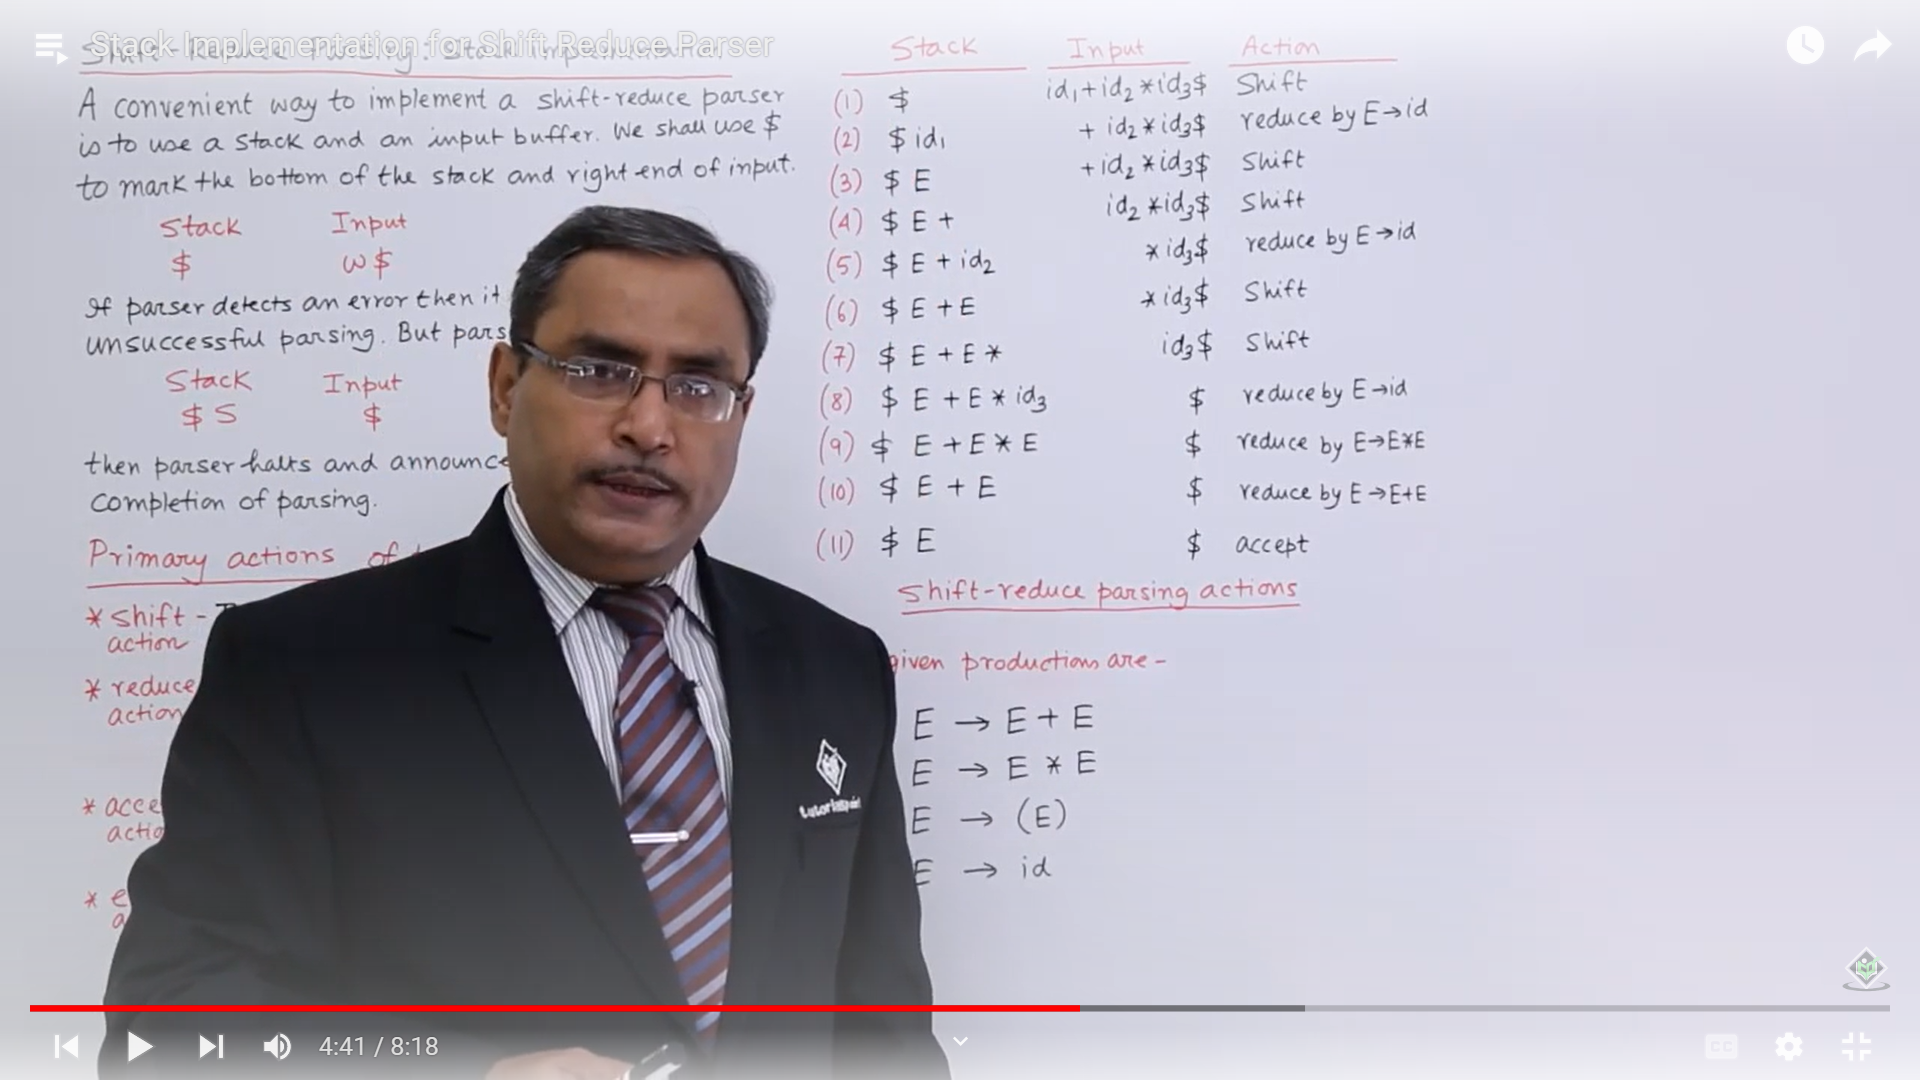 Stack Implementation for Shift Reduce Parser
A convenient way to implement a shift-reduce parser
is to use a stack and an input buffer. We shall use $
to mark the bottom of the stack and right end of input.
Stack Input
$ w $
If parser detects an error then it
unsuccessful parsing. But pars
Stack Input
$ S $
then parser halts and announce
completion of parsing.
Primary actions of
* shift -
action
* reduce
action
* acce
actio
* e
a
Stack Input Action
(1) $ id₁+id₂*id₃$ Shift
(2) $ id₁ + id₂*id₃$ reduce by E→id
(3) $ E +id₂*id₃$ Shift
(4) $ E + id₂*id₃$ Shift
(5) $ E + id₂ *id₃$ reduce by E→id
(6) $ E + E *id₃$ Shift
(7) $ E + E * id₃$ Shift
(8) $ E + E * id₃ $ reduce by E→id
(9) $ E + E * E $ reduce by E→E*E
(10) $ E + E $ reduce by E→E+E
(11) $ E $ accept
Shift-reduce parsing actions
given productions are -
E → E + E
E → E * E
E → (E)
E → id
tutorialspoint
4:41 / 8:18
CC